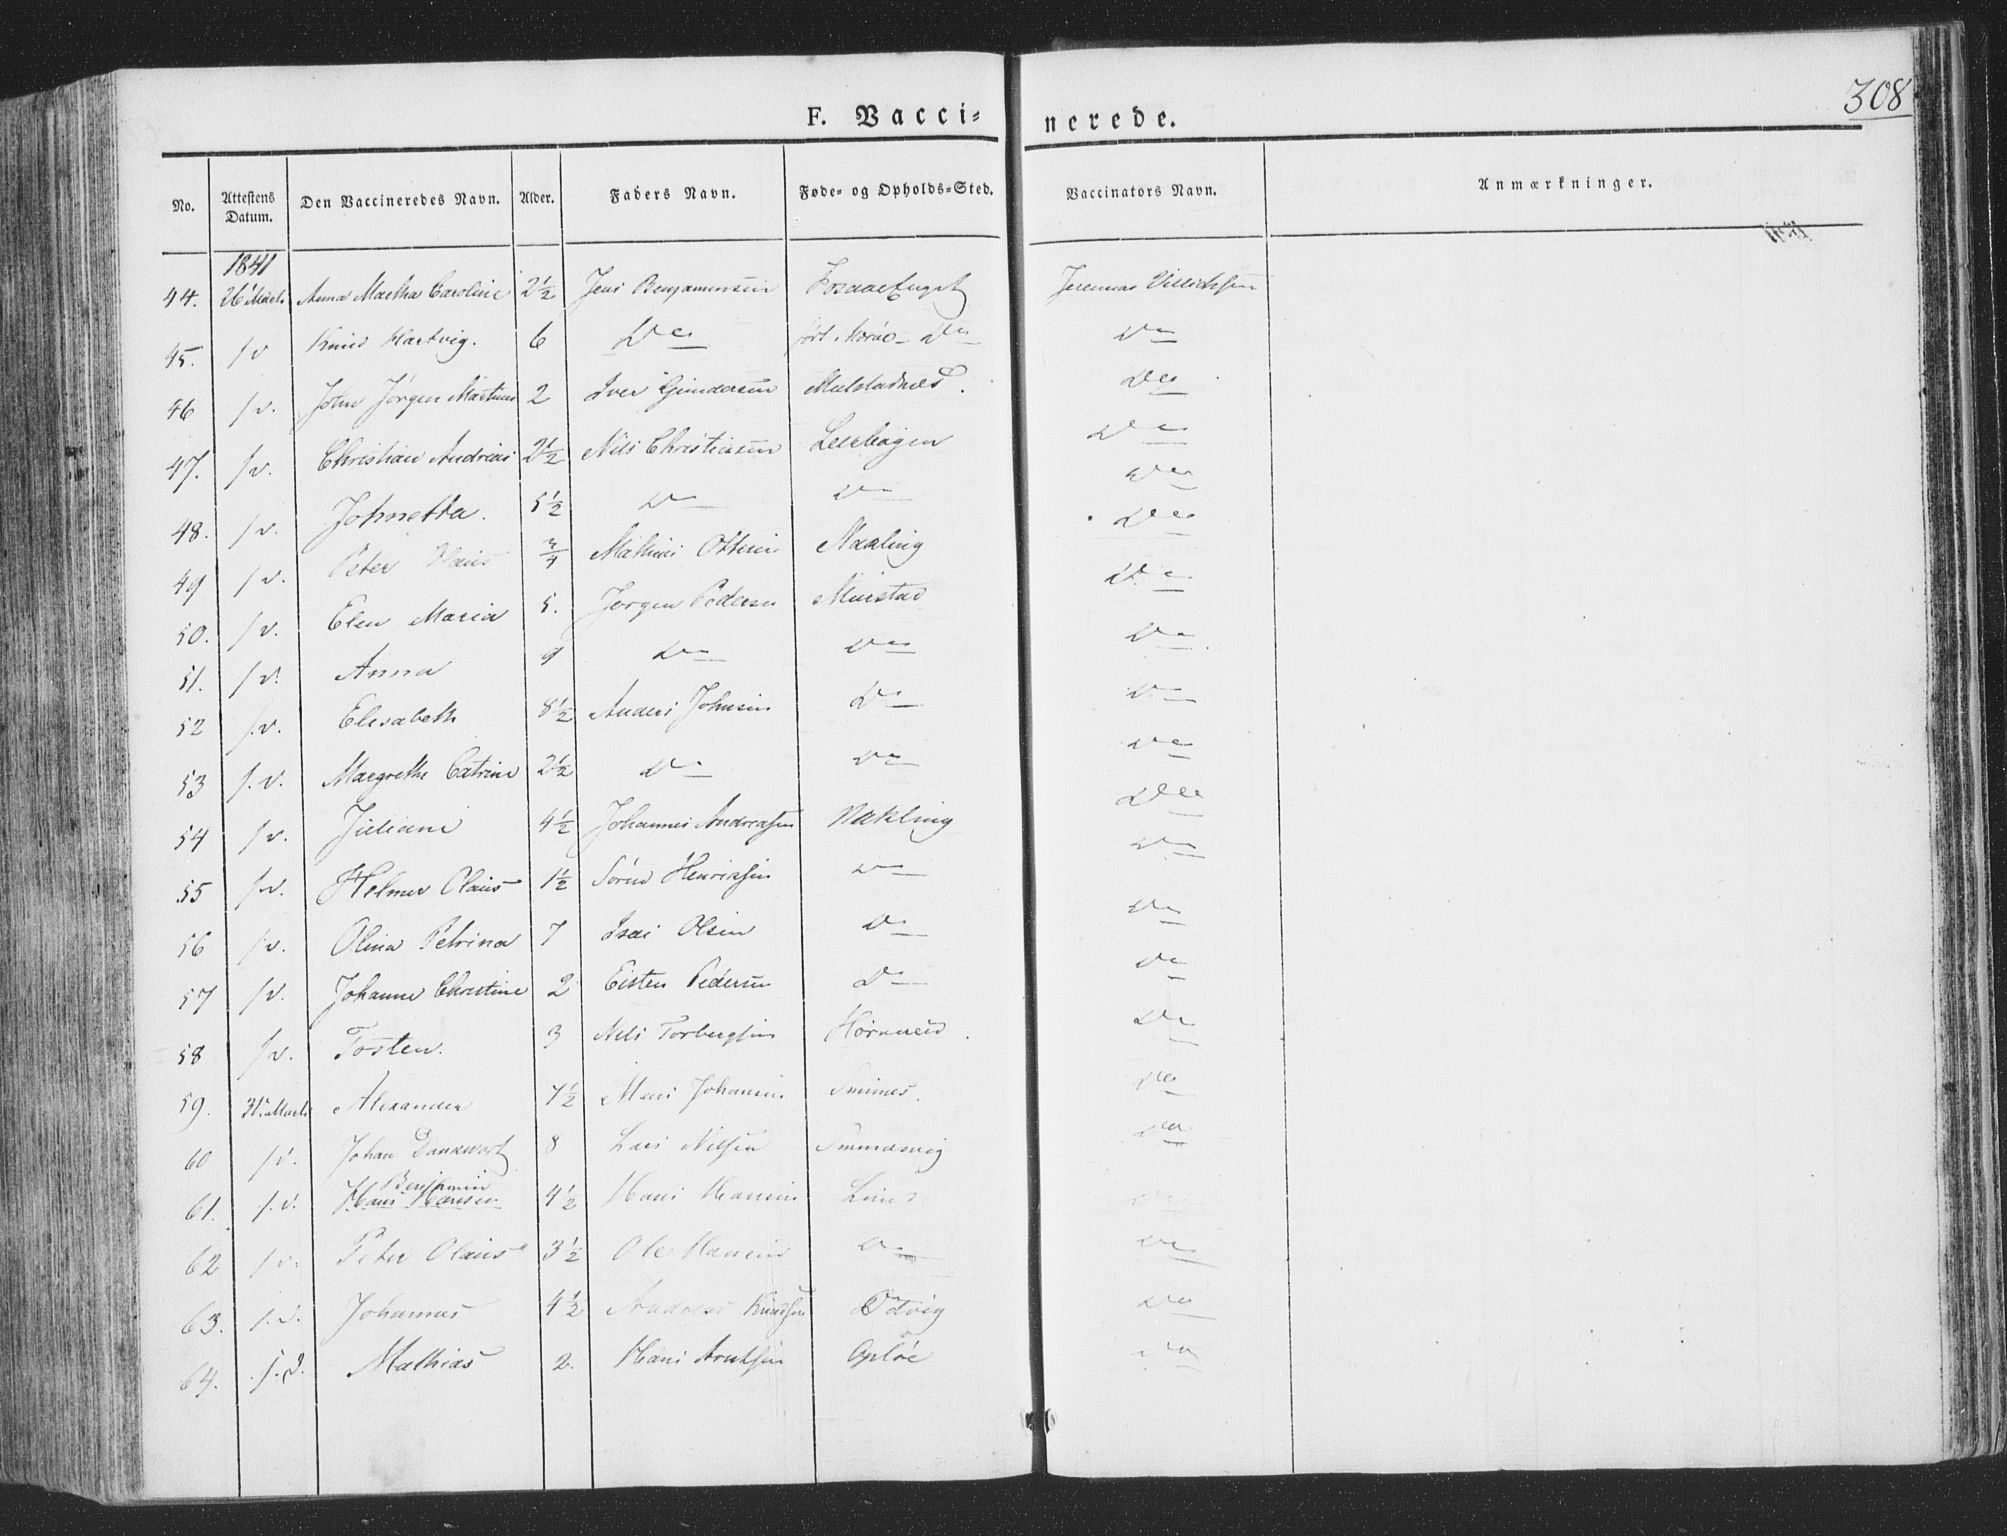 308
F. Vacci- nerede.
No. Attestens Datum. Den Vaccineredes Navn. Alder. Faders Navn. Føde- og Opholds-Sted. Vaccinators Navn. Anmærkninger.
1841
44. 26 Marts Anna Martha Caroline 2½ Jens Benjaminsen Jeremias
45. s v Knud Hartvig. 6 Do Do Do
46 s v. John Jörgen Martinus 2 Iver Gundersen Do
47. s v. Christian Andreas 2½ Nils Christiansen Do
48. s v. Johnetta. 5½ Do Do Do
49 s v. Peter Hans ¾ Mathias Ottesen Do
50. s v. Elen Maria 5. Jørgen Pedersen Do
51. s v. Anna 9 Do Do Do
52 s.v. Elisabeth 8½ Anders Johnsen Do Do
53 s.v. Margrethe Catrine 2½ Do Do Do
54 s v. Juliane 4½ Johannes Andreassen Nakling Do
55 s.v. Helmer Olaus 1½ Sören Henriksen Do Do
56 s v. Olina Petrina 7 Isac Olsen Do Do
57 s v. Johanne Christine 2 Eisten Pedersen Do Do
58 s v. Tosten. 3 Nils Torbergsen Do
59. 31 Marts Alexander 7½ Mons Johansen Do
60 s v. Johan Dankwort 8 Lars Nilsen Do
61. s.v. Hans Benjamin Hansen 4½ Hans Hansen Lund
62 s v. Peter Olaus 3½ Ole Hansen Do Do
63. s.v. Johannes 4½ Andreas Knudsen Do
64. s.v. Mathias 2. Hans Arntsen Oplöe Do